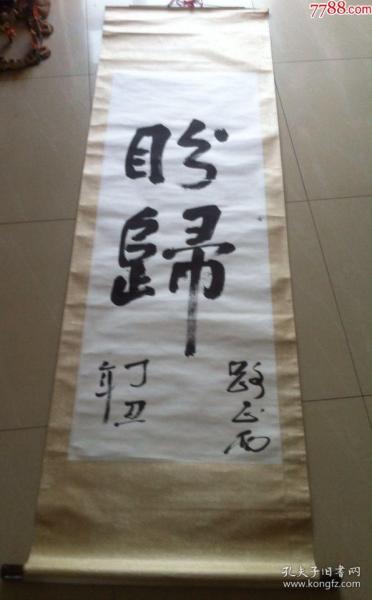 7788.com
盼
歸
路正西
丁丑
年
孔夫子旧书网
www.kongfz.com